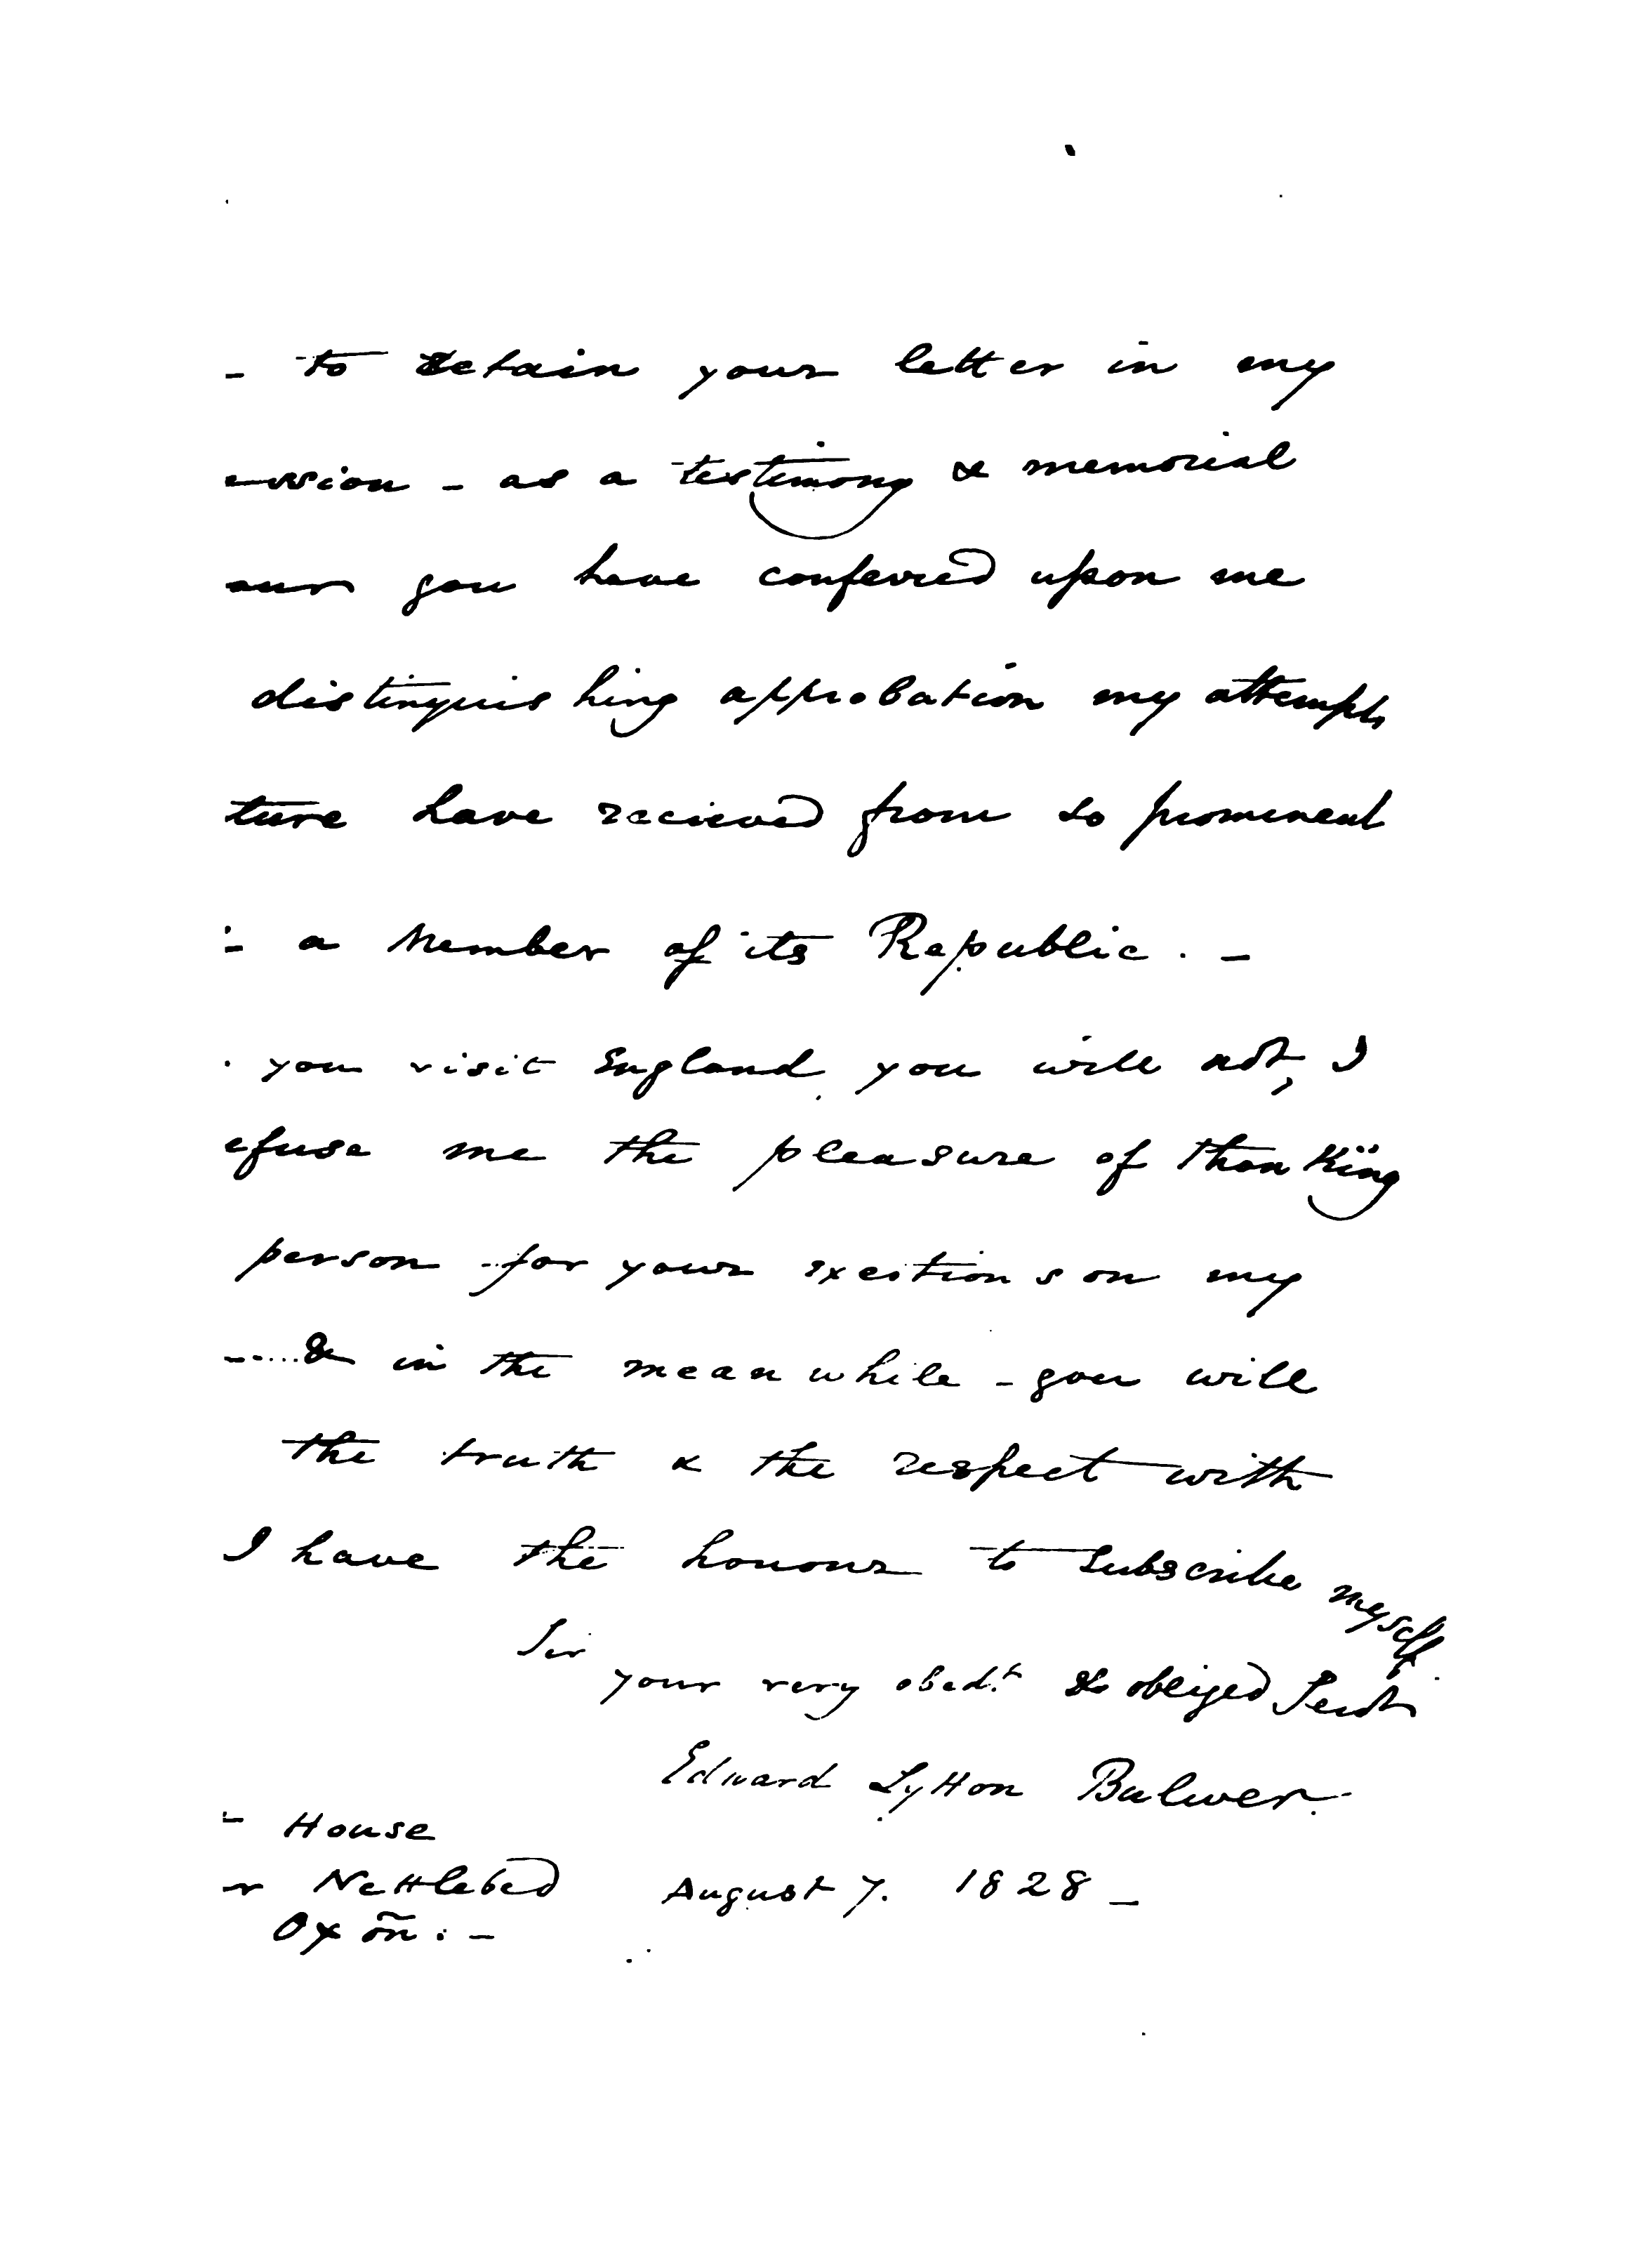 - to retain your letter in my
ession - as a testimony & memorial
our you have conferred upon me
distinguishing approbation my attempts
ture have recieved from so prominent
- a Member of its Republic. -
you visit England you will not, I
efuse me the pleasure of thanking
person for your exertions on my
& in the mean while - you will
the truth & the respect with
I have the honour to subscribe myself
Sir
your very obedt & obliged Servt
Edward Lytton Bulwer.
- House
r Nettlebed August 7. 1828 -
Oxoñ: -